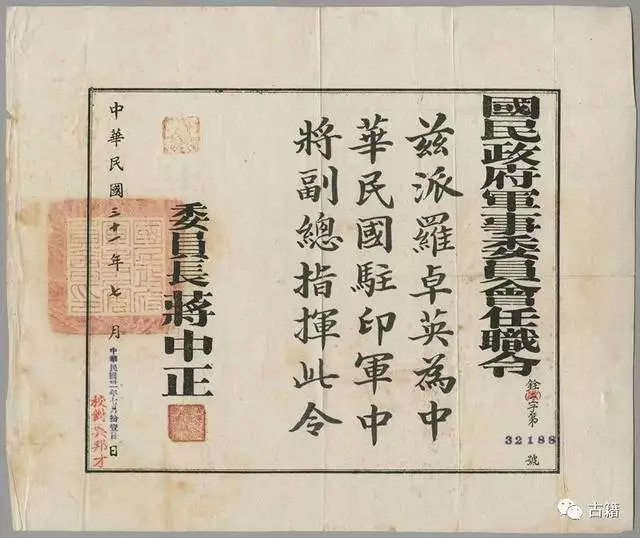 國民政府軍事委員會任職令
銓字第
32188
號
茲派羅卓英為中
華民國駐印軍中
將副總指揮此令
委員長蔣中正
中華民國三十一年七月
日
古籍